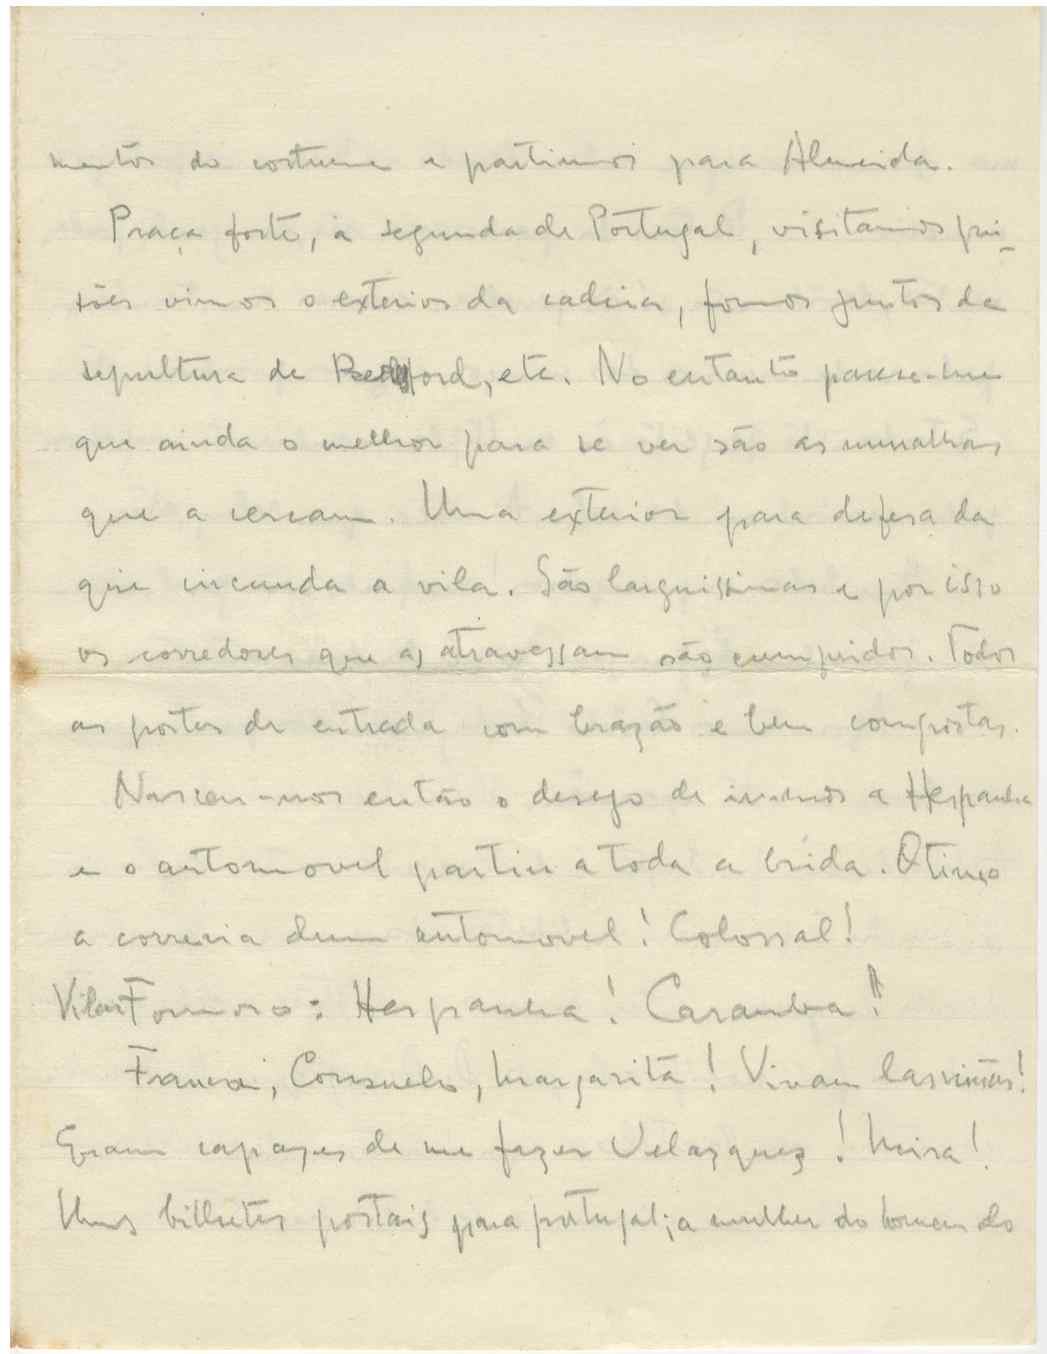 mentos do costume e partimos para Almeida.
Praça forte, a segunda de Portugal, visitamos pri-
sões vimos o exterior da cadeia, fomos juntos da
sepultura de Bedford, etc. No entanto parece-me
que ainda o melhor para se ver são as muralhas
que a cercam. Uma exterior para defesa da
que circunda a vila. São larguissimas e por isso
os corredores que as atravessam são cumpridos. Todos
as portas de entrada com brazão e bem compostas.
Nasceu-nos então o desejo de irmos a Hespanha
e o automovel partiu a toda a brida. Otimo
a correria dum automovel! Colossal!
Vilar Formoso: Hespanha! Caramba!!
Consuelo, Margarita! Vivan las niñas!
Eram capazes de me fazer Velazquez! Mira!
Uns bilhetes postais para portugal; a mulher do homem do